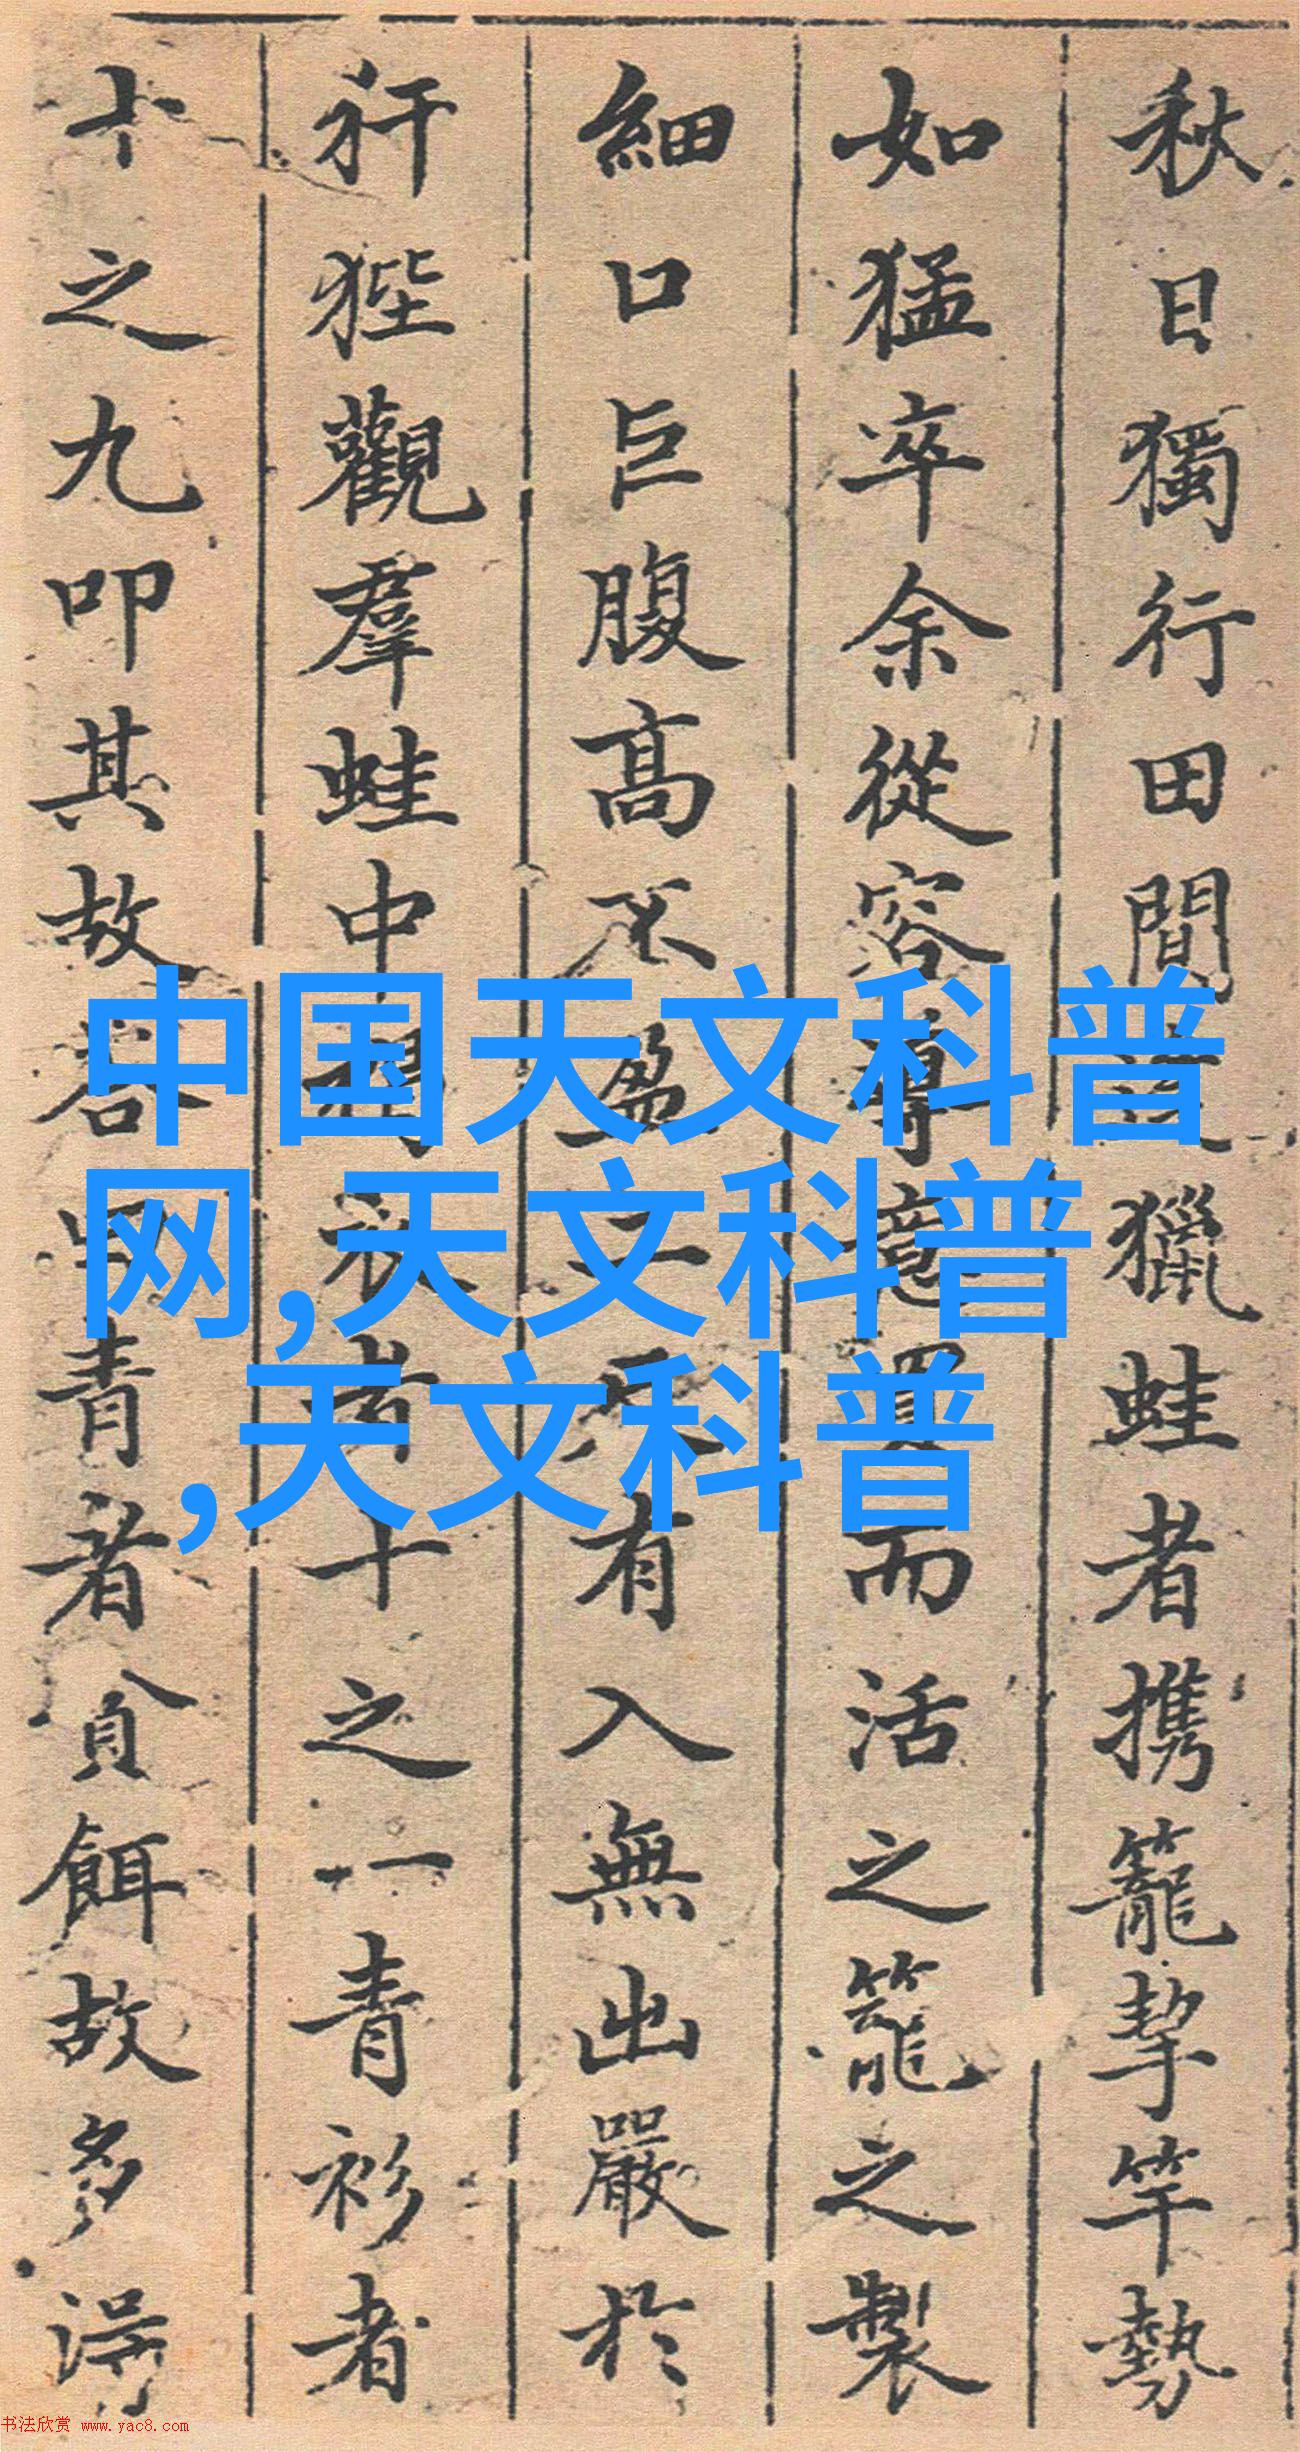 秋日獨行田間獵蛙者携籠挈竿勢
如猛卒余從容而活之籠之製
細口巨腹高不盈二尺有入無出嚴於
犴狴觀羣蛙中衣者十之一青衫者
十之九叩其故答曰青者貪餌故多得
中国天文科普
网,天文科普
,天文科普
书法欣赏 www.yac8.com